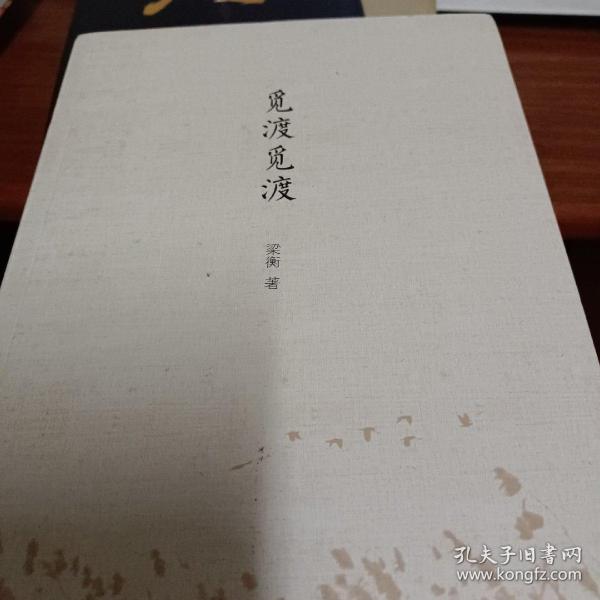 觅渡觅渡
梁衡 著
孔夫子旧书网
www.kongfz.com